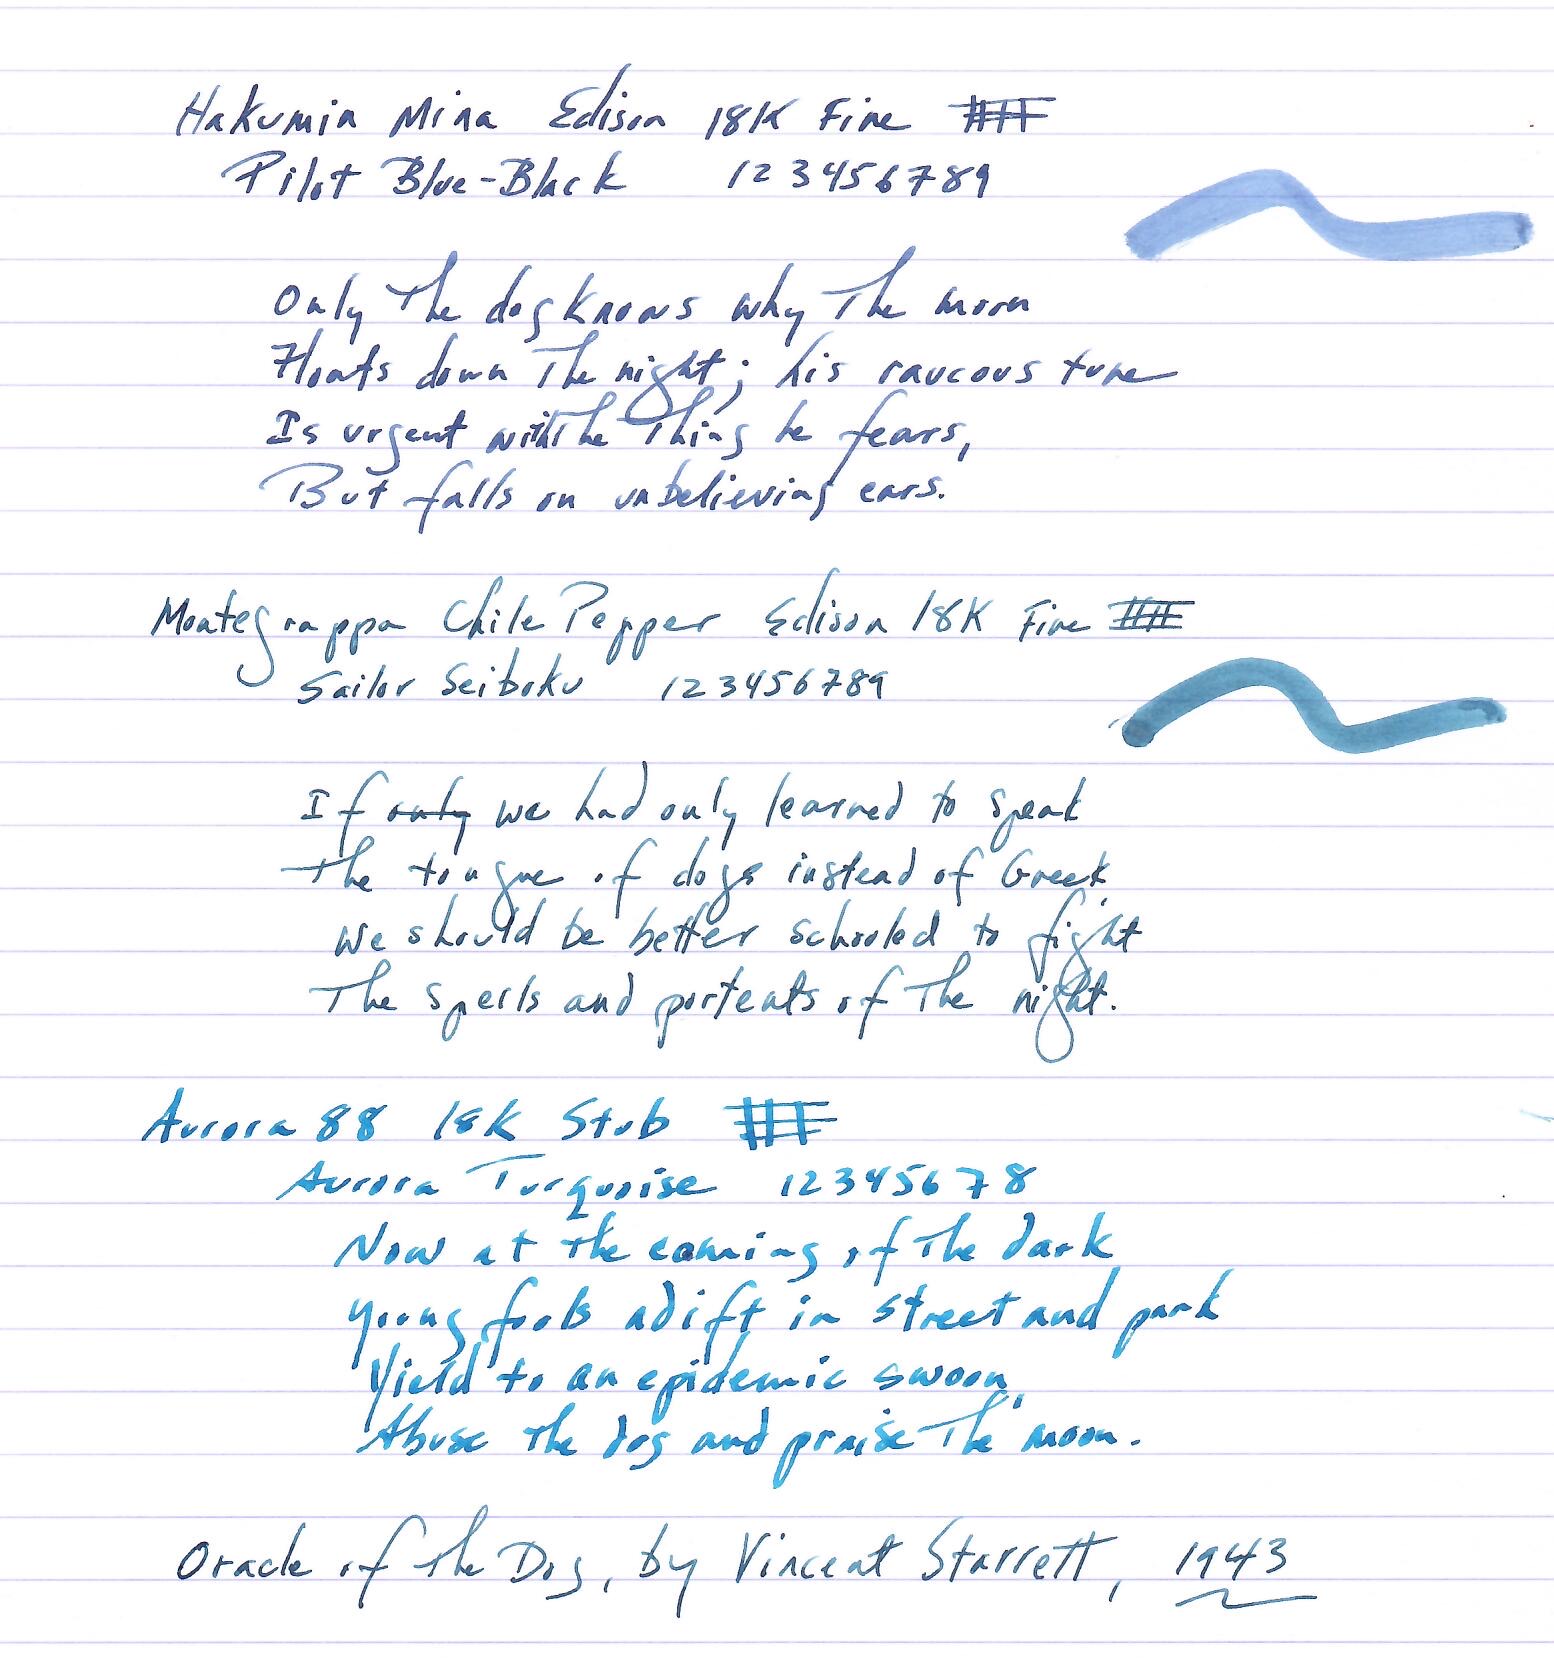 Hakumin Mina Edison 18K Fine
Pilot Blue-Black 123456789
Only the dog knows why the moon
Floats down the night; his raucous tune
Is urgent with the thing he fears,
But falls on unbelieving ears.
Montegrappa Chile Pepper Edison 18K Fine
Sailor Seiboku 123456789
If only we had only learned to speak
The tongue of dogs instead of Greek,
We should be better schooled to fight
The sperls and portents of the night.
Aurora 88 18K Stub
Aurora Turquoise 12345678
Now at the coming of the dark
Young fools adift in street and park
Yield to an epidemic swoon,
Abuse the dog and praise the moon.
Oracle of the Dog, by Vincent Starrett, 1943